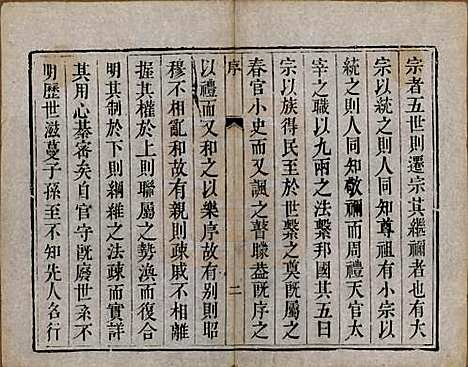 宗者五世則遷宗其繼禰者也有大
宗以統之則人同知尊祖有小宗以
統之則人同知敬禰而周禮天官太
宰之職以九兩之法繫邦國其五曰
宗以族得民至於世繫之奠既屬之
春官小史而又諷之瞽矇蓋既序之
序
二
以禮而又和之以樂序故有別則昭
穆不相亂和故有親則疎戚不相離
握其權於上則聯屬之勢渙而復合
明其制於下則綱維之法疎而實詳
其用心綦審矣自官守既廢世系不
明歷世滋蔓子孫至不知先人名行